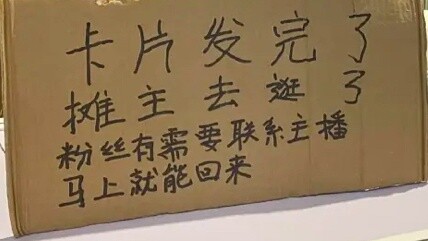 卡片发完了
摊主去逛了
粉丝有需要联系主播
马上就能回来